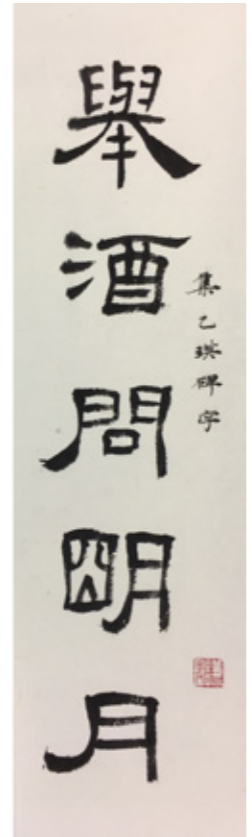 舉酒問朙月
集乙瑛碑字